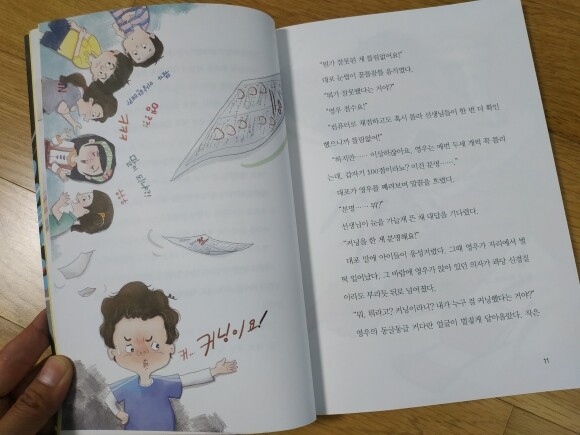 커닝이요!
"뭔가 잘못된 게 틀림없어요!"
대포 눈썹이 꿈틀꿈틀 움직였다.
"뭐가 잘못됐다는 거야?"
"영우 점수요!"
"컴퓨터로 채점하고도 혹시 몰라 선생님들이 한 번 더 확인
했으니까 틀림없어!"
"하지만…… 이상하잖아요. 영우는 매번 두세 개씩 꼭 틀리
는데, 갑자기 100점이라뇨? 이건 분명……."
대포가 영우를 째려보며 말끝을 흐렸다.
"분명…… 뭐?"
선생님이 눈을 가늘게 뜬 채 대답을 기다렸다.
"커닝을 한 게 분명해요!"
대포 말에 아이들이 웅성거렸다. 그때 영우가 자리에서 벌
떡 일어났다. 그 바람에 영우가 앉아 있던 의자가 와당 신경질
이라도 부리듯 뒤로 넘어졌다.
"뭐, 뭐라고? 커닝이라니? 내가 누구 걸 커닝했다는 거야?"
영우의 둥글둥글 커다란 얼굴이 벌겋게 달아올랐다. 작은
11